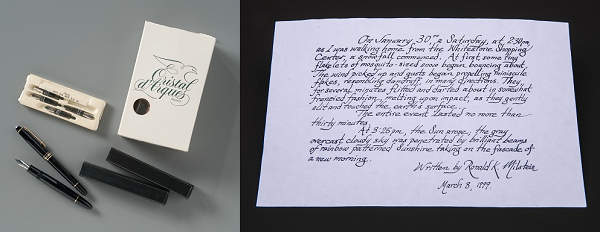 Cristal
d'Arques
On January 30th, a Saturday, at 2:30pm
as I was walking home from the Whitestone Shopping
Center, a snowfall commenced. At first some tiny
flakelets of mosquito-sized snow began bouncing about.
The wind picked up and gusts began propelling miniscule
flakes, resembling dandruff, in many directions. They
for several minutes flitted and darted about in somewhat
frenzied fashion, melting upon impact, as they gently
slit and touched the earth's surface.
The entire event lasted no more than
thirty minutes.
At 3:25pm, the Sun arose, the gray
overcast cloudy sky was penetrated by brilliant beams
of rainbow patterned sunshine taking on the facade of
a new morning.
Written by Ronald K. Milstein
March 8, 1999.